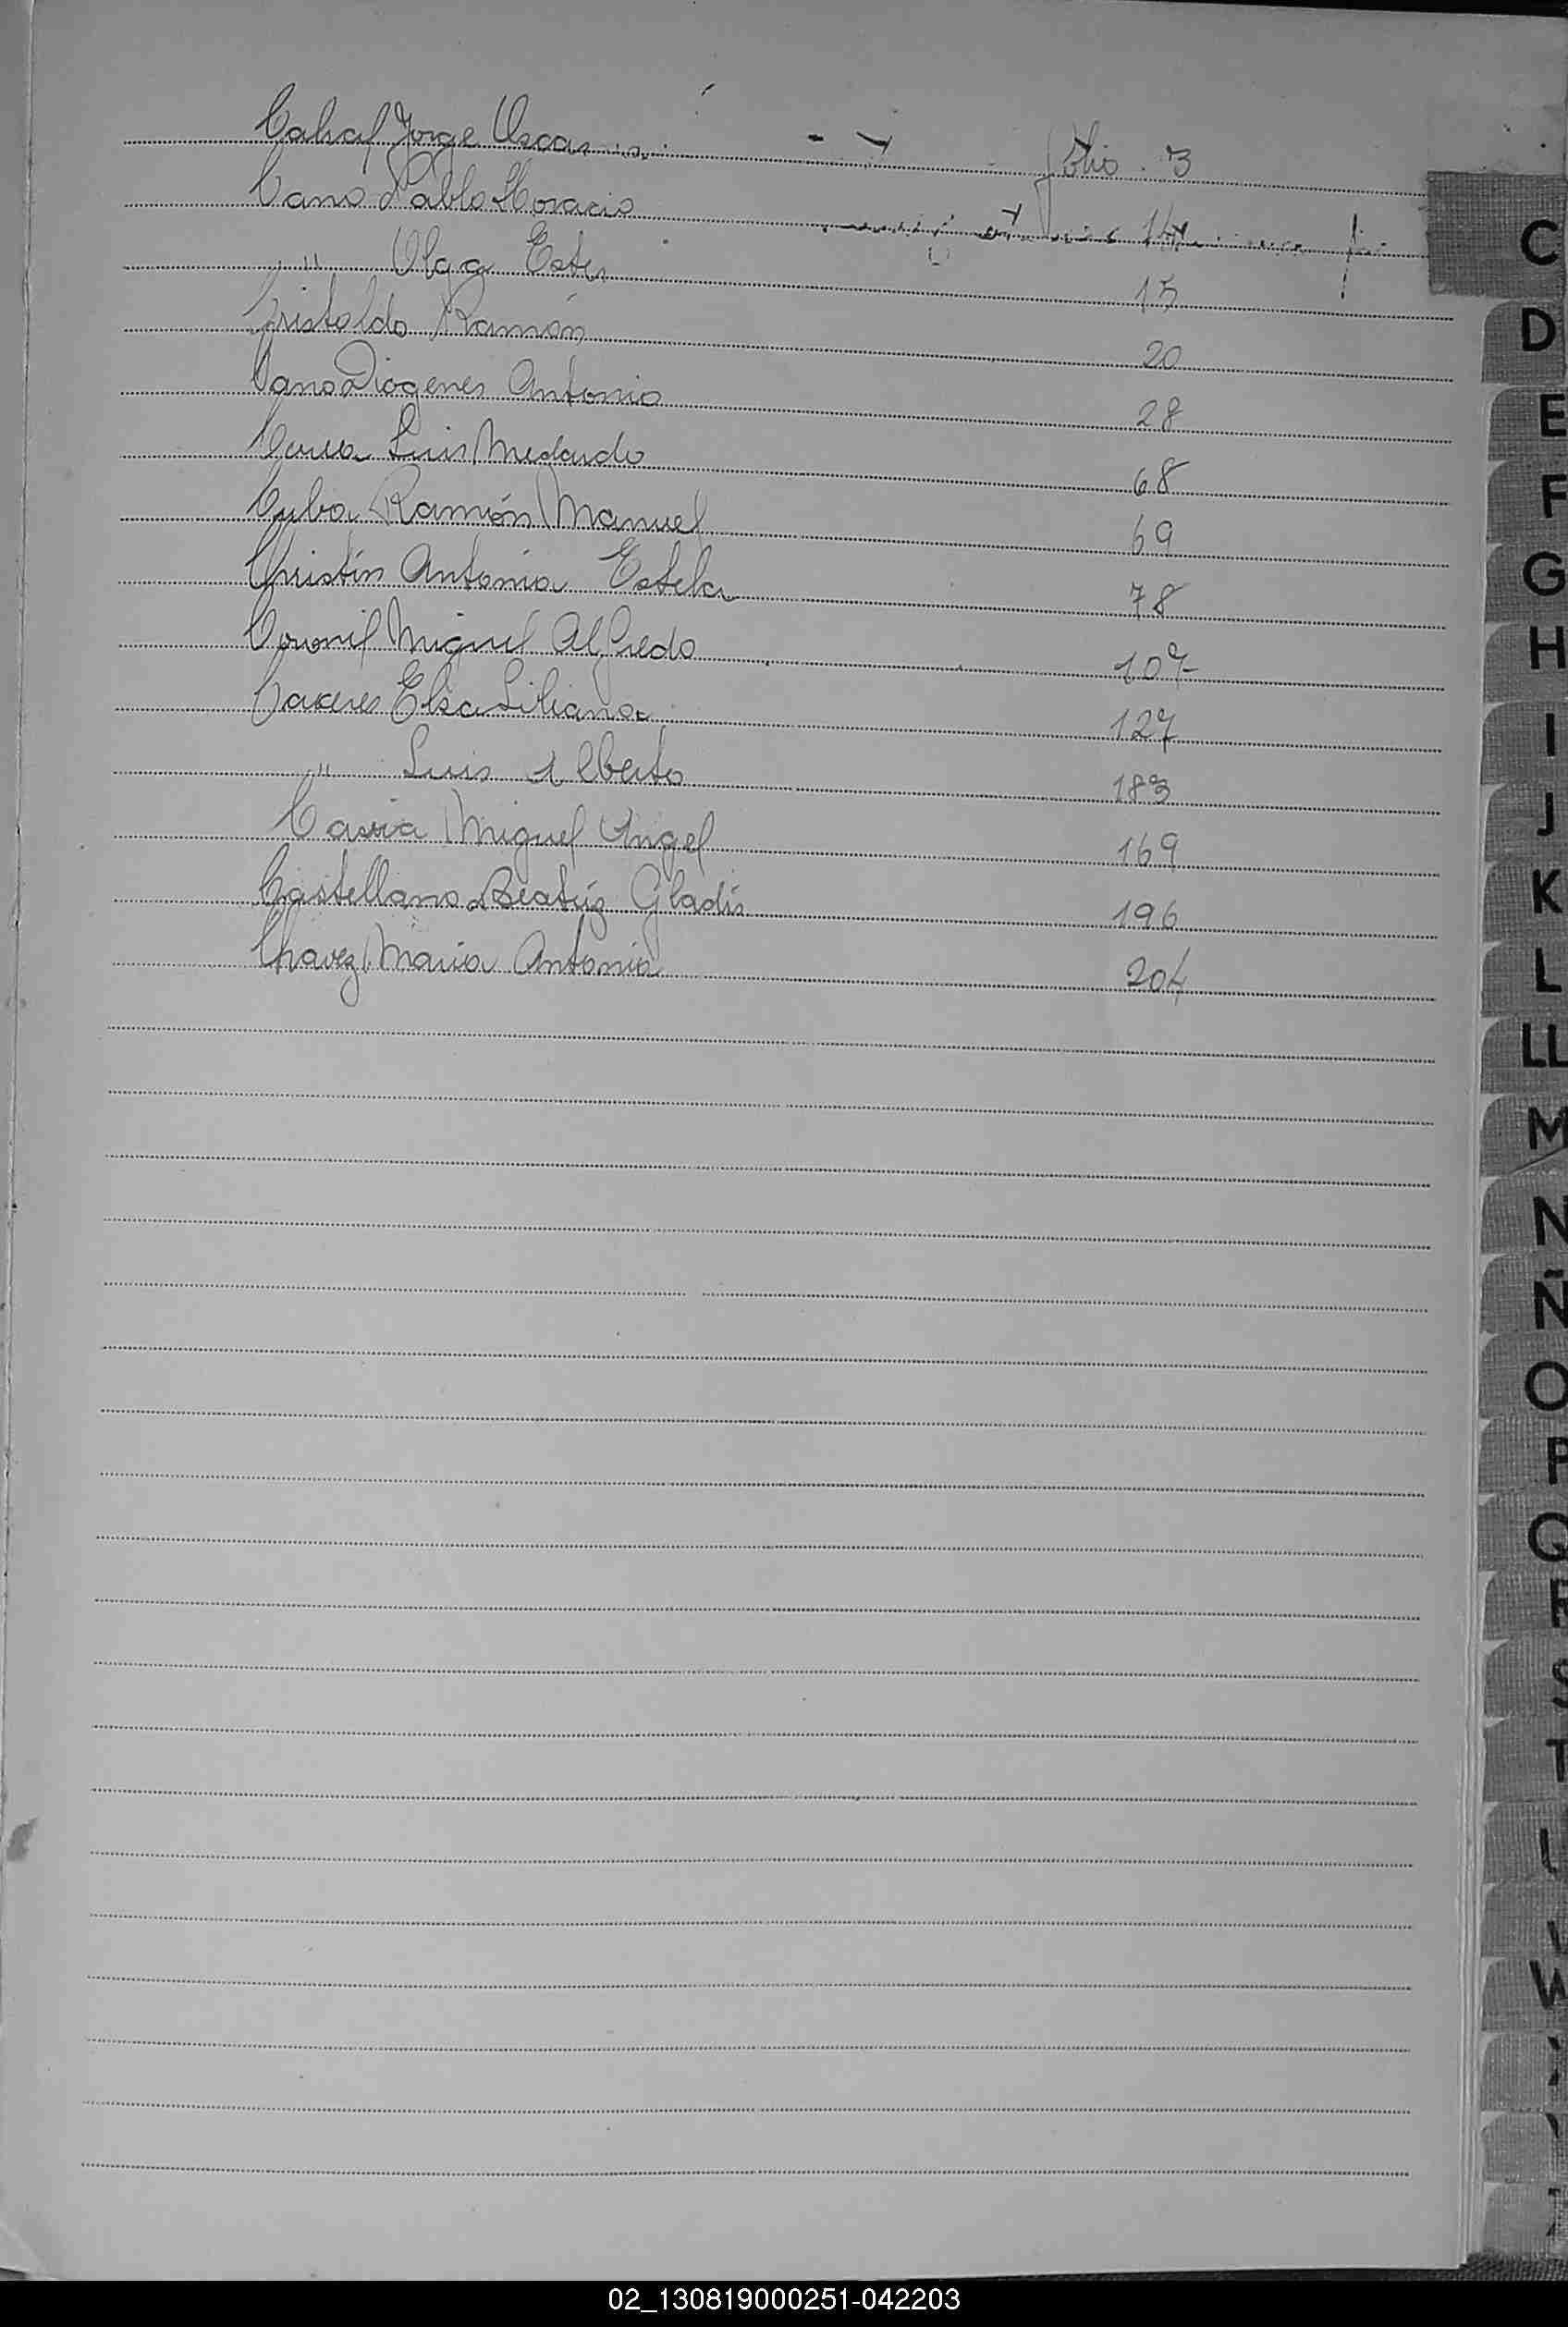 Cahaf Jorge Oscar folio 3
Cano Pablo Horacio 14
" Olga Ester 15
Cristaldo Ramón 20
Cano Diogenes Antonio 28
Luis Medardo 68
Cuba Ramón Manuel 69
Christin Antonia Estela 78
Coronil Miguel Alfredo 107
Caceres Elsa Liliana 127
" Luis Alberto 183
Miguel Angel 169
Castellano Beatriz Gladis 196
Chavez Maria Antonia 204
C
D
E
F
G
H
I
J
K
L
LL
M
N
Ñ
O
P
Q
R
S
T
U
W
02_130819000251-042203